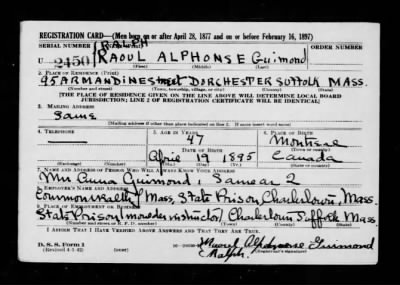 REGISTRATION CARD—(Men born on or after April 28, 1877 and on or before February 16, 1897)
SERIAL NUMBER
ORDER NUMBER
(RALPH
U 2450 RAOUL ALPHONSE Guimond
(First) (Middle) (Last)
2. PLACE OF RESIDENCE (Print)
95 ARMANDINE street DORCHESTER SUFFOLK MASS.
(Number and street) (Town, township, village, or city) (County) (State)
[THE PLACE OF RESIDENCE GIVEN ON THE LINE ABOVE WILL DETERMINE LOCAL BOARD
JURISDICTION; LINE 2 OF REGISTRATION CERTIFICATE WILL BE IDENTICAL]
3. MAILING ADDRESS
Same
[Mailing address if other than place indicated on line 2. If same insert word same]
4. TELEPHONE
5. AGE IN YEARS
6. PLACE OF BIRTH
— 47
DATE OF BIRTH
April 19 1895 Canada
(Exchange) (Number) (Mo.) (Day) (Yr.) (State or country)
7. NAME AND ADDRESS OF PERSON WHO WILL ALWAYS KNOW YOUR ADDRESS
Guimond, Same as 2
8. EMPLOYER'S NAME AND ADDRESS
Commonwealth of Mass. State Prison Charlestown, Mass.
9. PLACE OF EMPLOYMENT OR BUSINESS
State Prison Charlestown Suffolk Mass
(Number and street or R. F. D. number) (Town) (County) (State)
I AFFIRM THAT I HAVE VERIFIED ABOVE ANSWERS AND THAT THEY ARE TRUE.
D. S. S. Form 1
(Revised 4-1-42) (over)
Raoul Alphonse Guimond
Ralph
(Registrant's signature)